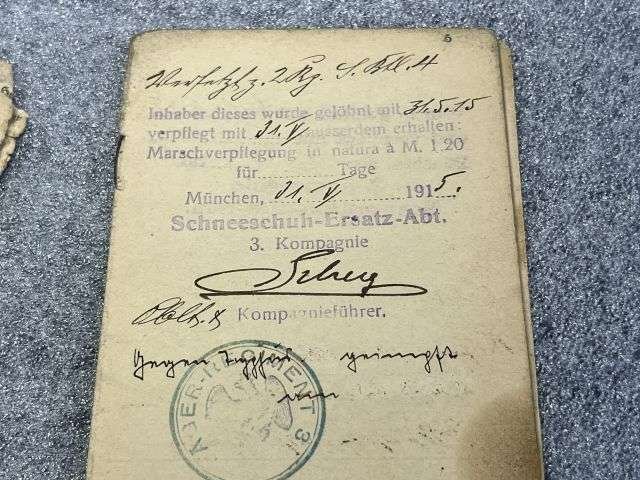 6
Versetzt z. 2 Kp. S. Btl. 4
Inhaber dieses wurde gelöhnt mit 31.5.15
verpflegt mit 31. V ausserdem erhalten:
Marschverpflegung in natura à M. 1,20
für Tage
München, 31. V. 1915.
Schneeschuh-Ersatz-Abt.
3. Kompagnie
Oblt. & Kompagnieführer.
Gegen Typhus geimpft
am
6